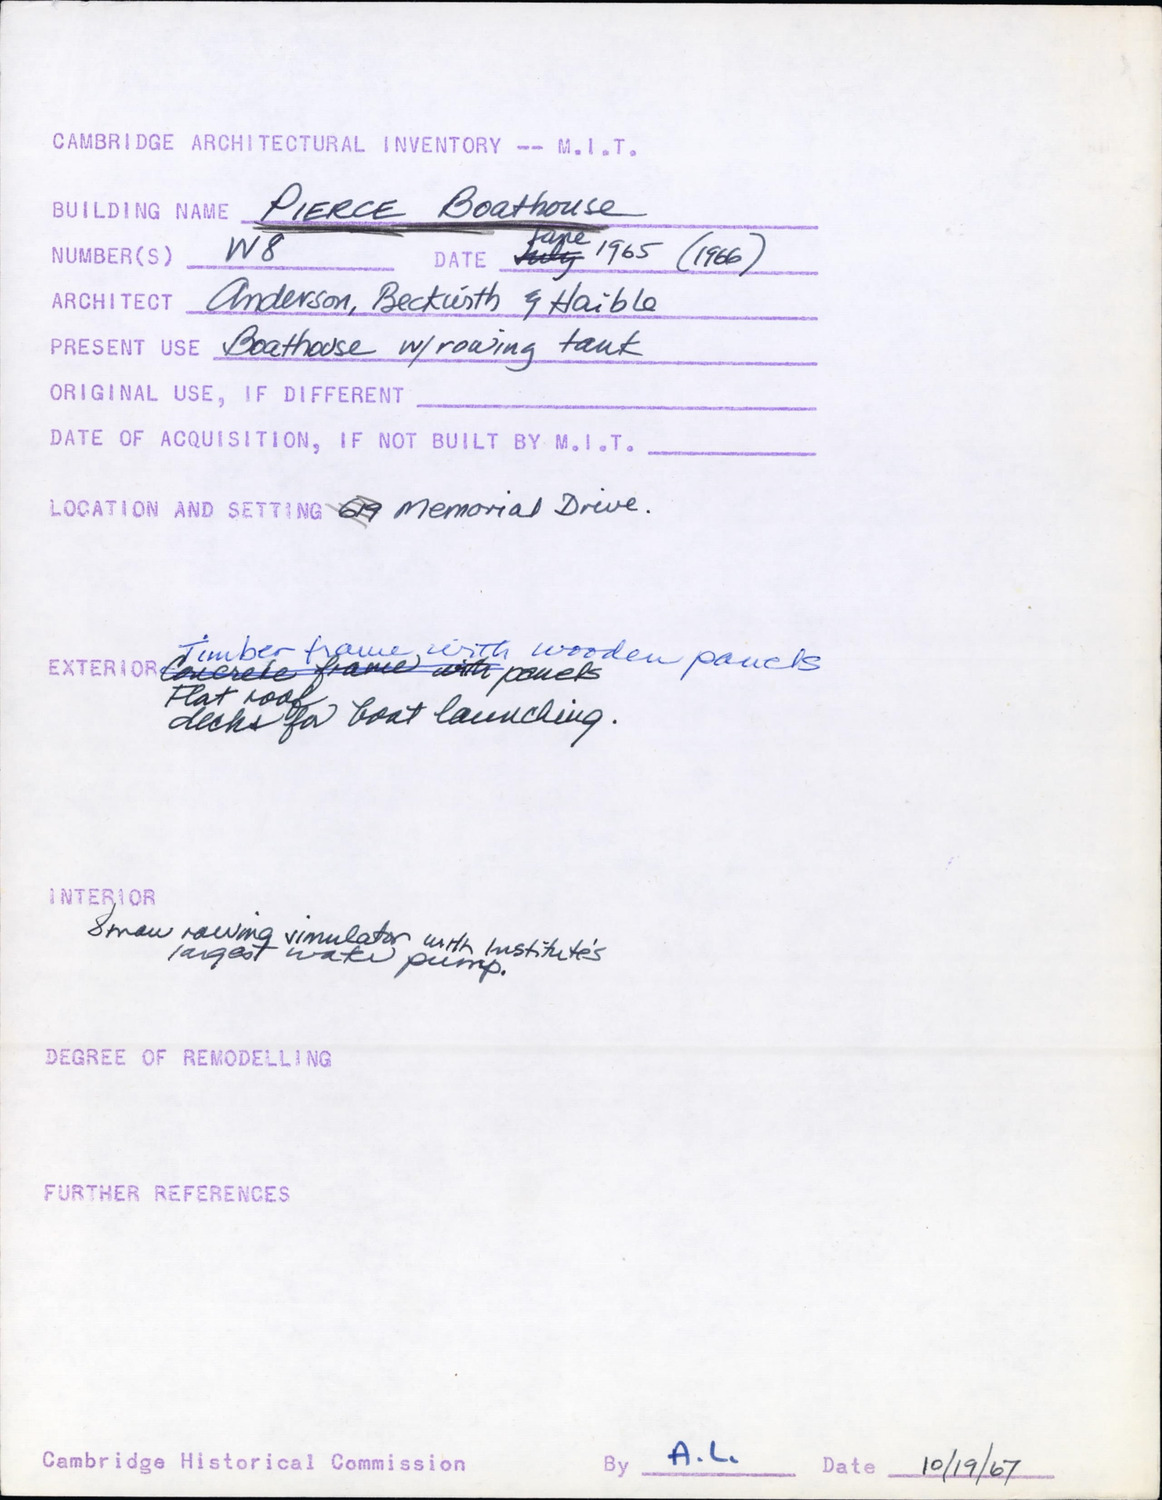 CAMBRIDGE ARCHITECTURAL INVENTORY -- M.I.T.
BUILDING NAME PIERCE Boathouse
NUMBER(S) W8 DATE July June 1965 (1966)
ARCHITECT Anderson, Beckwith & Haible
PRESENT USE Boathouse w/rowing tank
ORIGINAL USE, IF DIFFERENT
DATE OF ACQUISITION, IF NOT BUILT BY M.I.T.
LOCATION AND SETTING Memorial Drive.
Timber frame with wooden panels
EXTERIOR Concrete frame with panels
Flat roof
decks for boat launching.
INTERIOR
8 man rowing simulator with Institute's
largest water pump.
DEGREE OF REMODELLING
FURTHER REFERENCES
Cambridge Historical Commission By A.L. Date 10/19/67